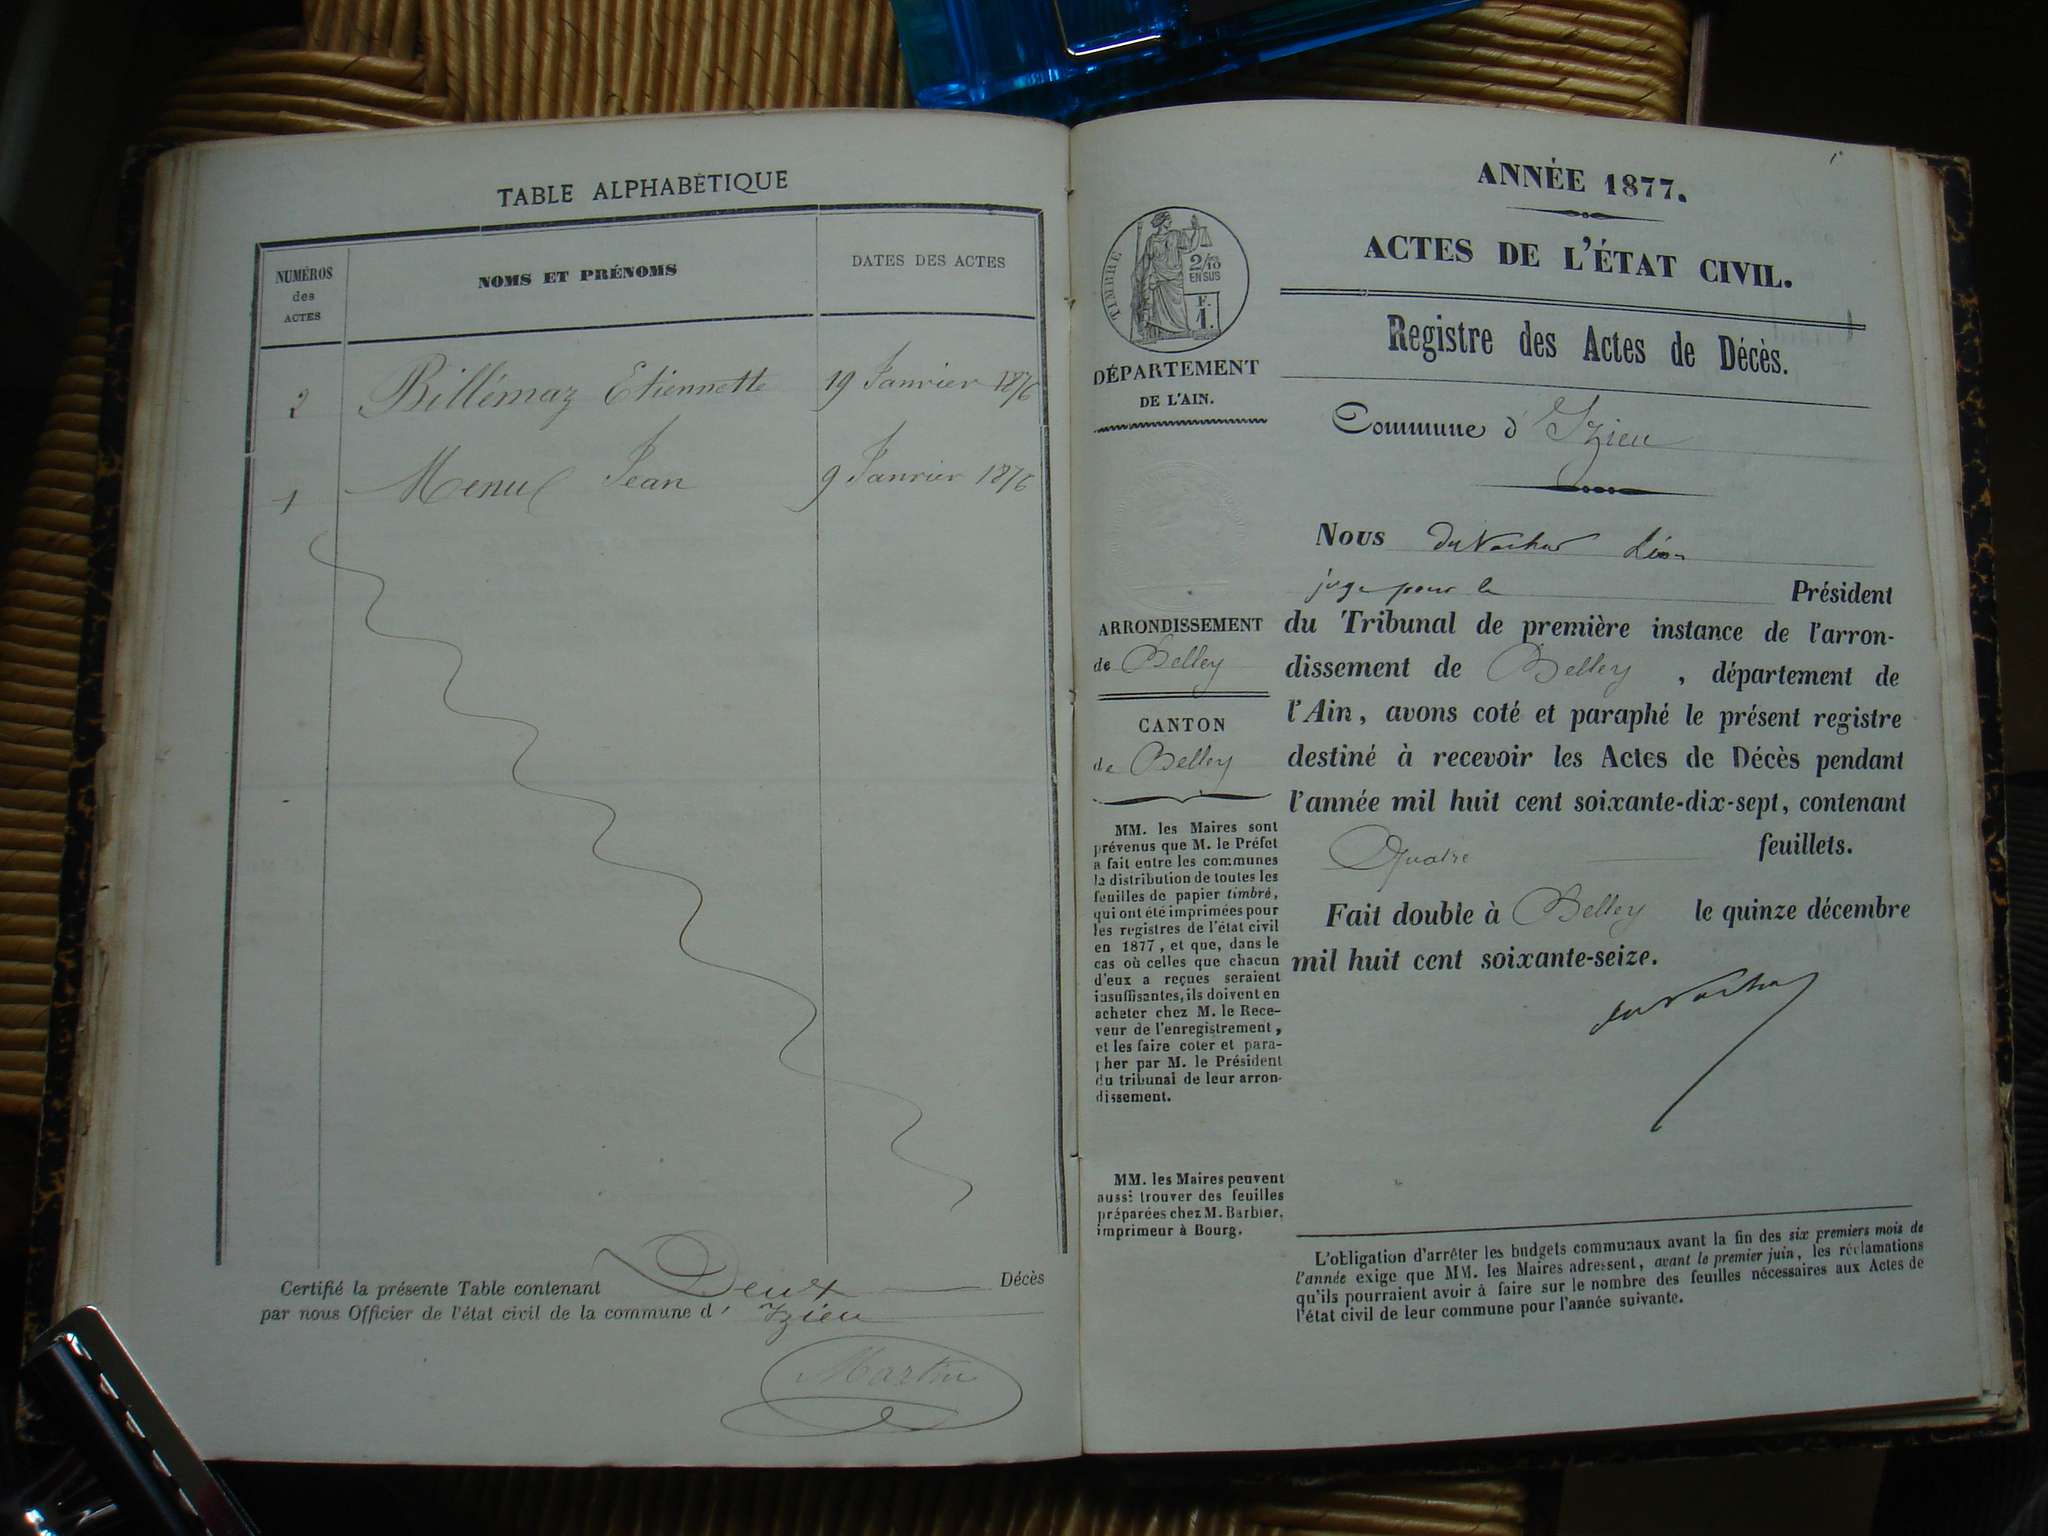 TABLE ALPHABÉTIQUE
NUMÉROS
des
ACTES
NOMS ET PRÉNOMS
DATES DES ACTES
2 Billémaz Etiennette 19 Janvier 1876
1 Menu Jean 9 Janvier 1876
Certifié la présente Table contenant Deux Décès
par nous Officier de l'état civil de la commune d' Izieu
Martin
ANNÉE 1877.
ACTES DE L'ÉTAT CIVIL.
Registre des Actes de Décès.
Commune d' Izieu
TIMBRE
2/10
EN SUS
F.
1.
DÉPARTEMENT
DE L'AIN.
ARRONDISSEMENT
de Belley
CANTON
de Belley
MM. les Maires sont
prévenus que M. le Préfet
a fait entre les communes
la distribution de toutes les
feuilles de papier timbré,
qui ont été imprimées pour
les registres de l'état civil
en 1877, et que, dans le
cas où celles que chacun
d'eux a reçues seraient
insuffisantes, ils doivent en
acheter chez M. le Rece-
veur de l'enregistrement,
et les faire coter et para-
pher par M. le Président
du tribunal de leur arron-
dissement.
MM. les Maires peuvent
aussi trouver des feuilles
préparées chez M. Barbier,
imprimeur à Bourg.
Nous Léon
juge pour le Président
du Tribunal de première instance de l'arron-
dissement de Belley, département de
l'Ain, avons coté et paraphé le présent registre
destiné à recevoir les Actes de Décès pendant
l'année mil huit cent soixante-dix-sept, contenant
Quatre feuillets.
Fait double à Belley le quinze décembre
mil huit cent soixante-seize.
L'obligation d'arrêter les budgets communaux avant la fin des six premiers mois de
l'année exige que MM. les Maires adressent, avant le premier juin, les réclamations
qu'ils pourraient avoir à faire sur le nombre des feuilles nécessaires aux Actes de
l'état civil de leur commune pour l'année suivante.